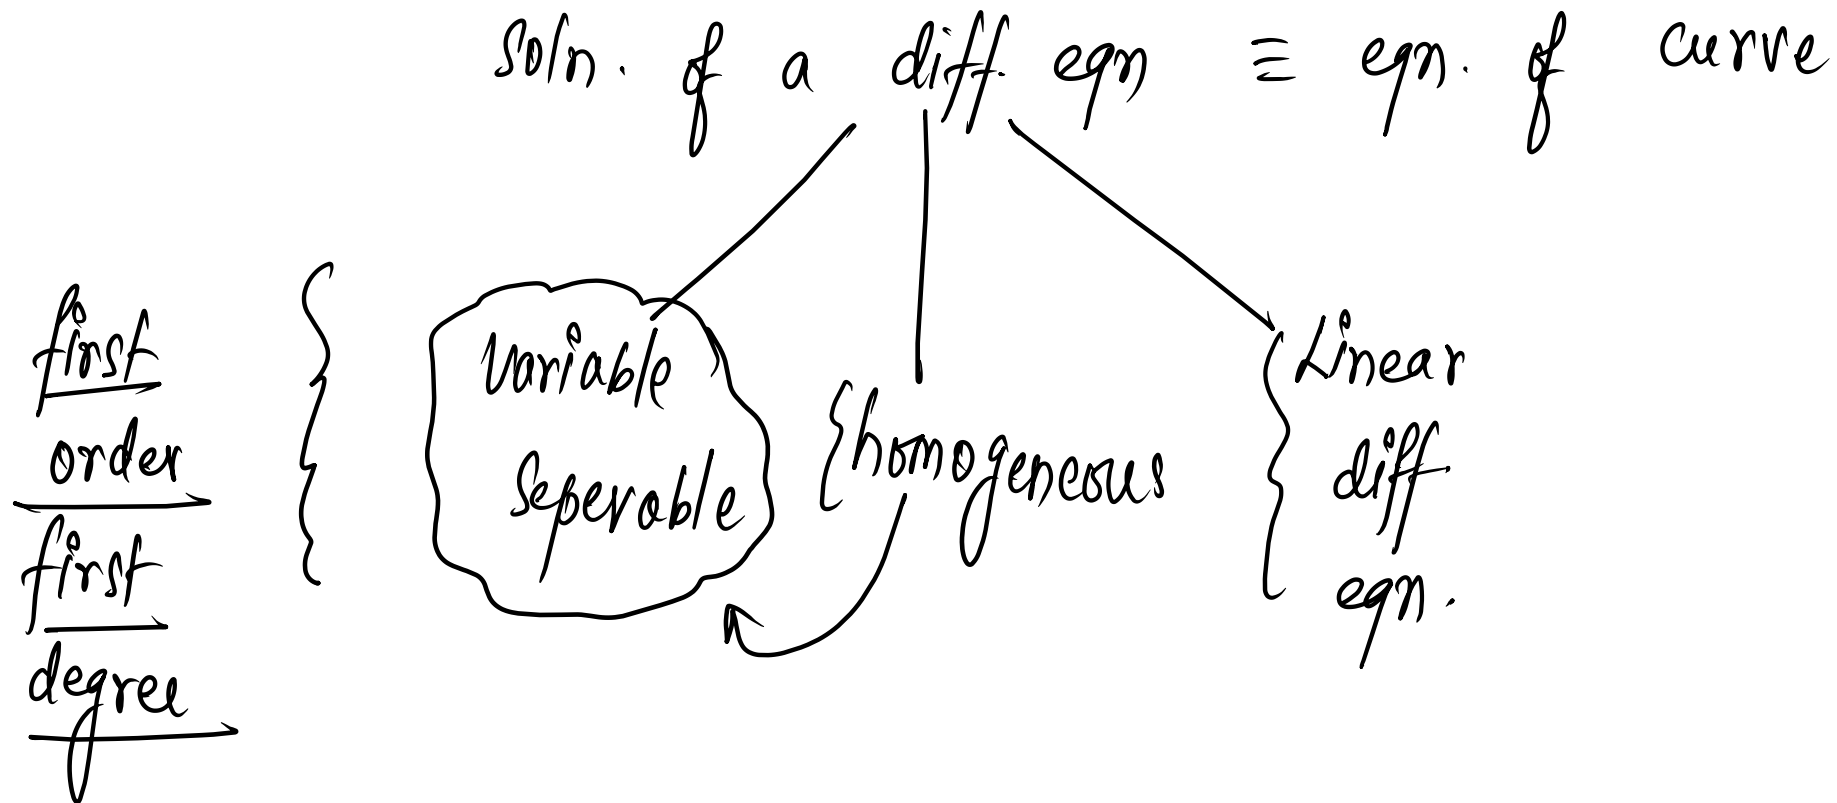 soln. of a diff. eqn ≡ eqn. of curve
first
order
first
degree
Variable
Seperable
homogeneous
Linear
diff
eqn.